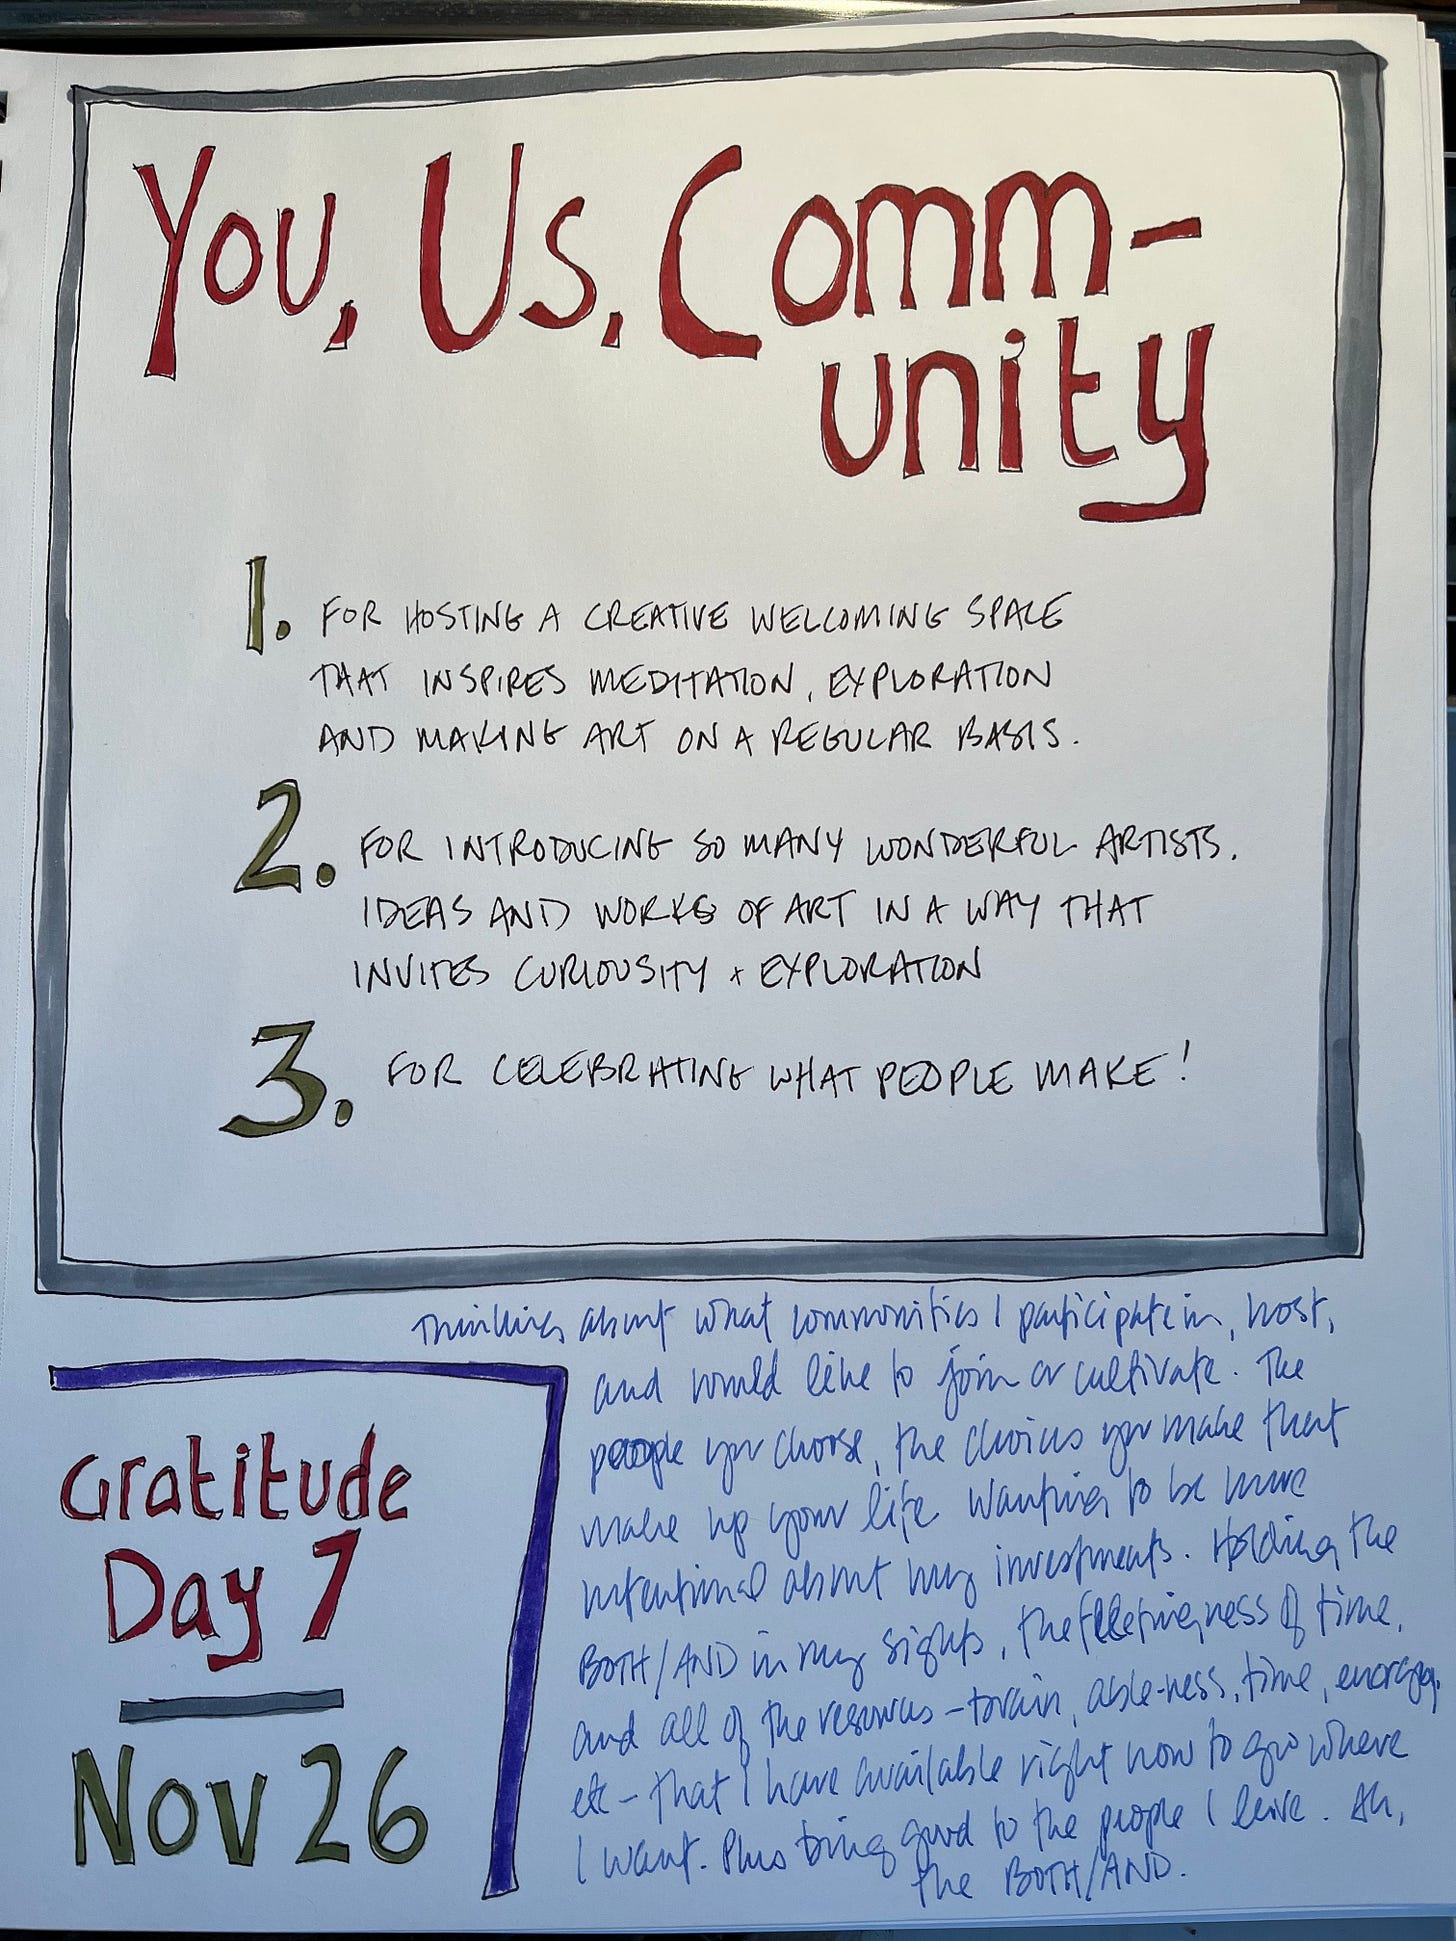 You, Us, Comm-
unity
1. FOR HOSTING A CREATIVE WELCOMING SPACE
THAT INSPIRES MEDITATION, EXPLORATION
AND MAKING ART ON A REGULAR BASIS.
2. FOR INTRODUCING SO MANY WONDERFUL ARTISTS.
IDEAS AND WORKS OF ART IN A WAY THAT
INVITES CURIOUSITY + EXPLORATION
3. FOR CELEBRATING WHAT PEOPLE MAKE!
Thinking about what communities I participate in, host,
and would like to join or cultivate. The
people you choose, the choices you make that
make up your life. Wanting to be more
intentional about my investments. Holding the
BOTH/AND in my sights, the fleetingness of time,
and all of the resources - brain, able-ness, time, energy,
etc - that I have available right now to go where
I want. Plus being good to the people I love. Ah,
the BOTH/AND.
Gratitude
Day 7
Nov 26